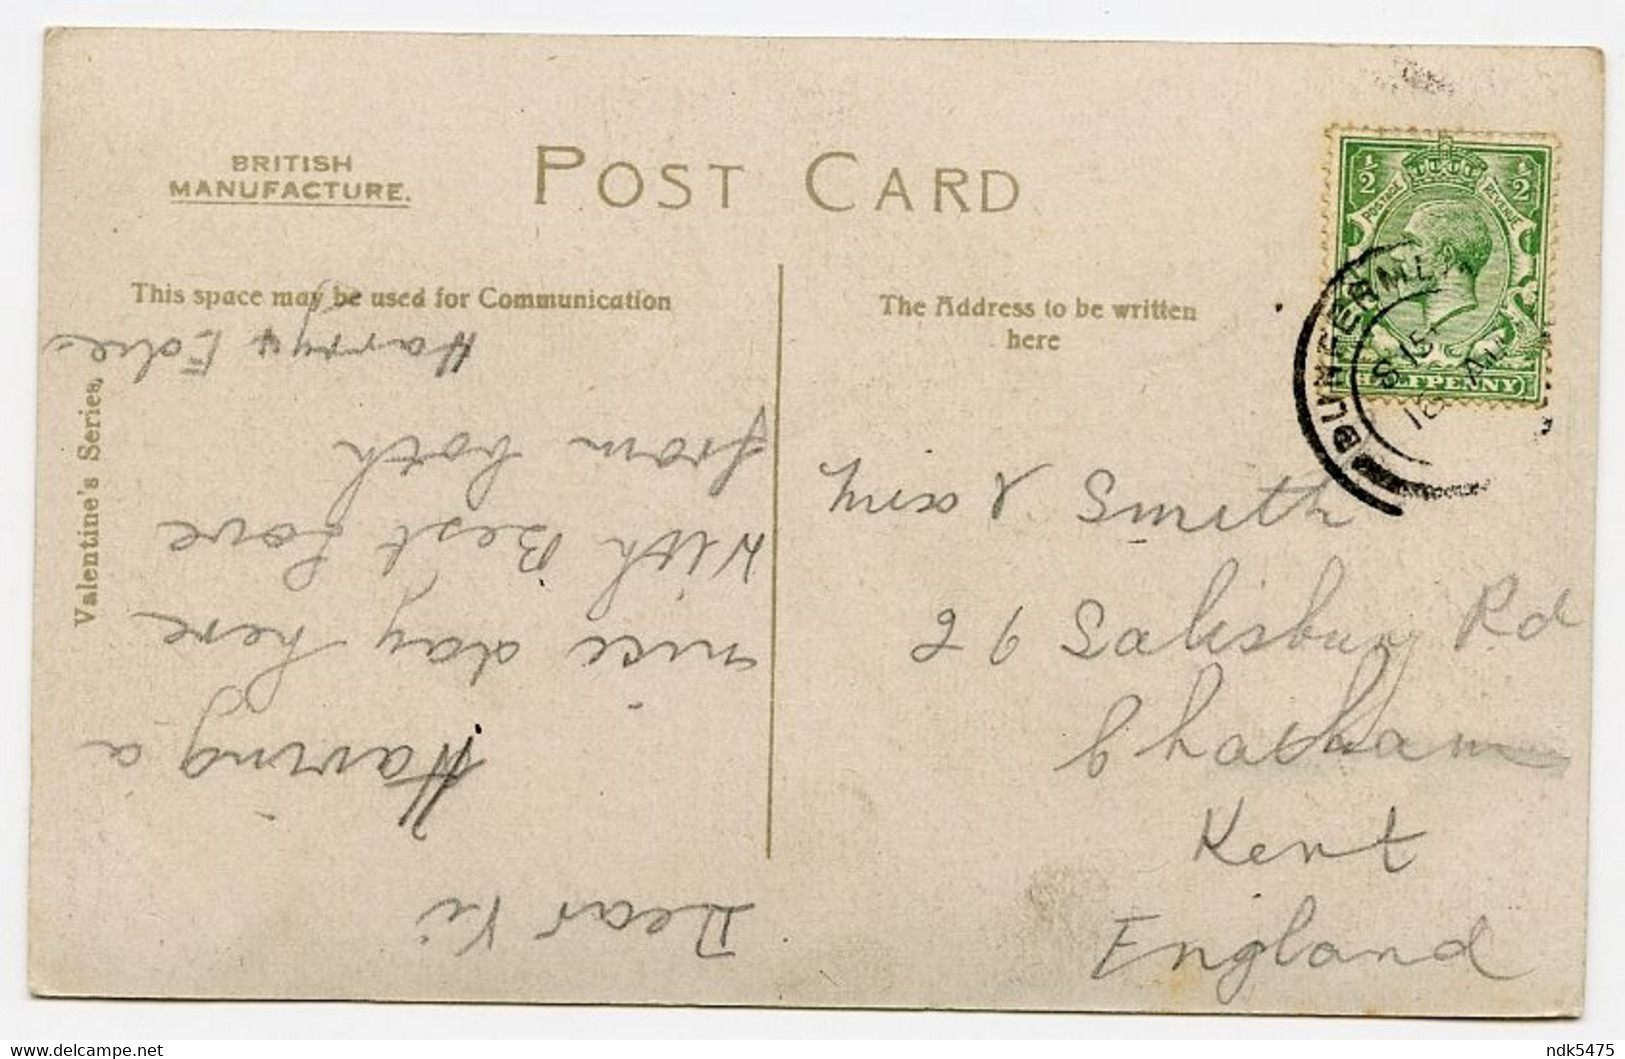 BRITISH
MANUFACTURE.
POST CARD
This space may be used for Communication
The Address to be written
here
Valentine's Series,
½ ½
POSTAGE REVENUE
HALFPENNY
DUNFERML
S 15
AU
16
Dear Vi
Having a
nice day here
With Best Love
from both
Harry & Edie
Miss V Smith
26 Salisbury Rd
Chatham
Kent
England
ndk5475